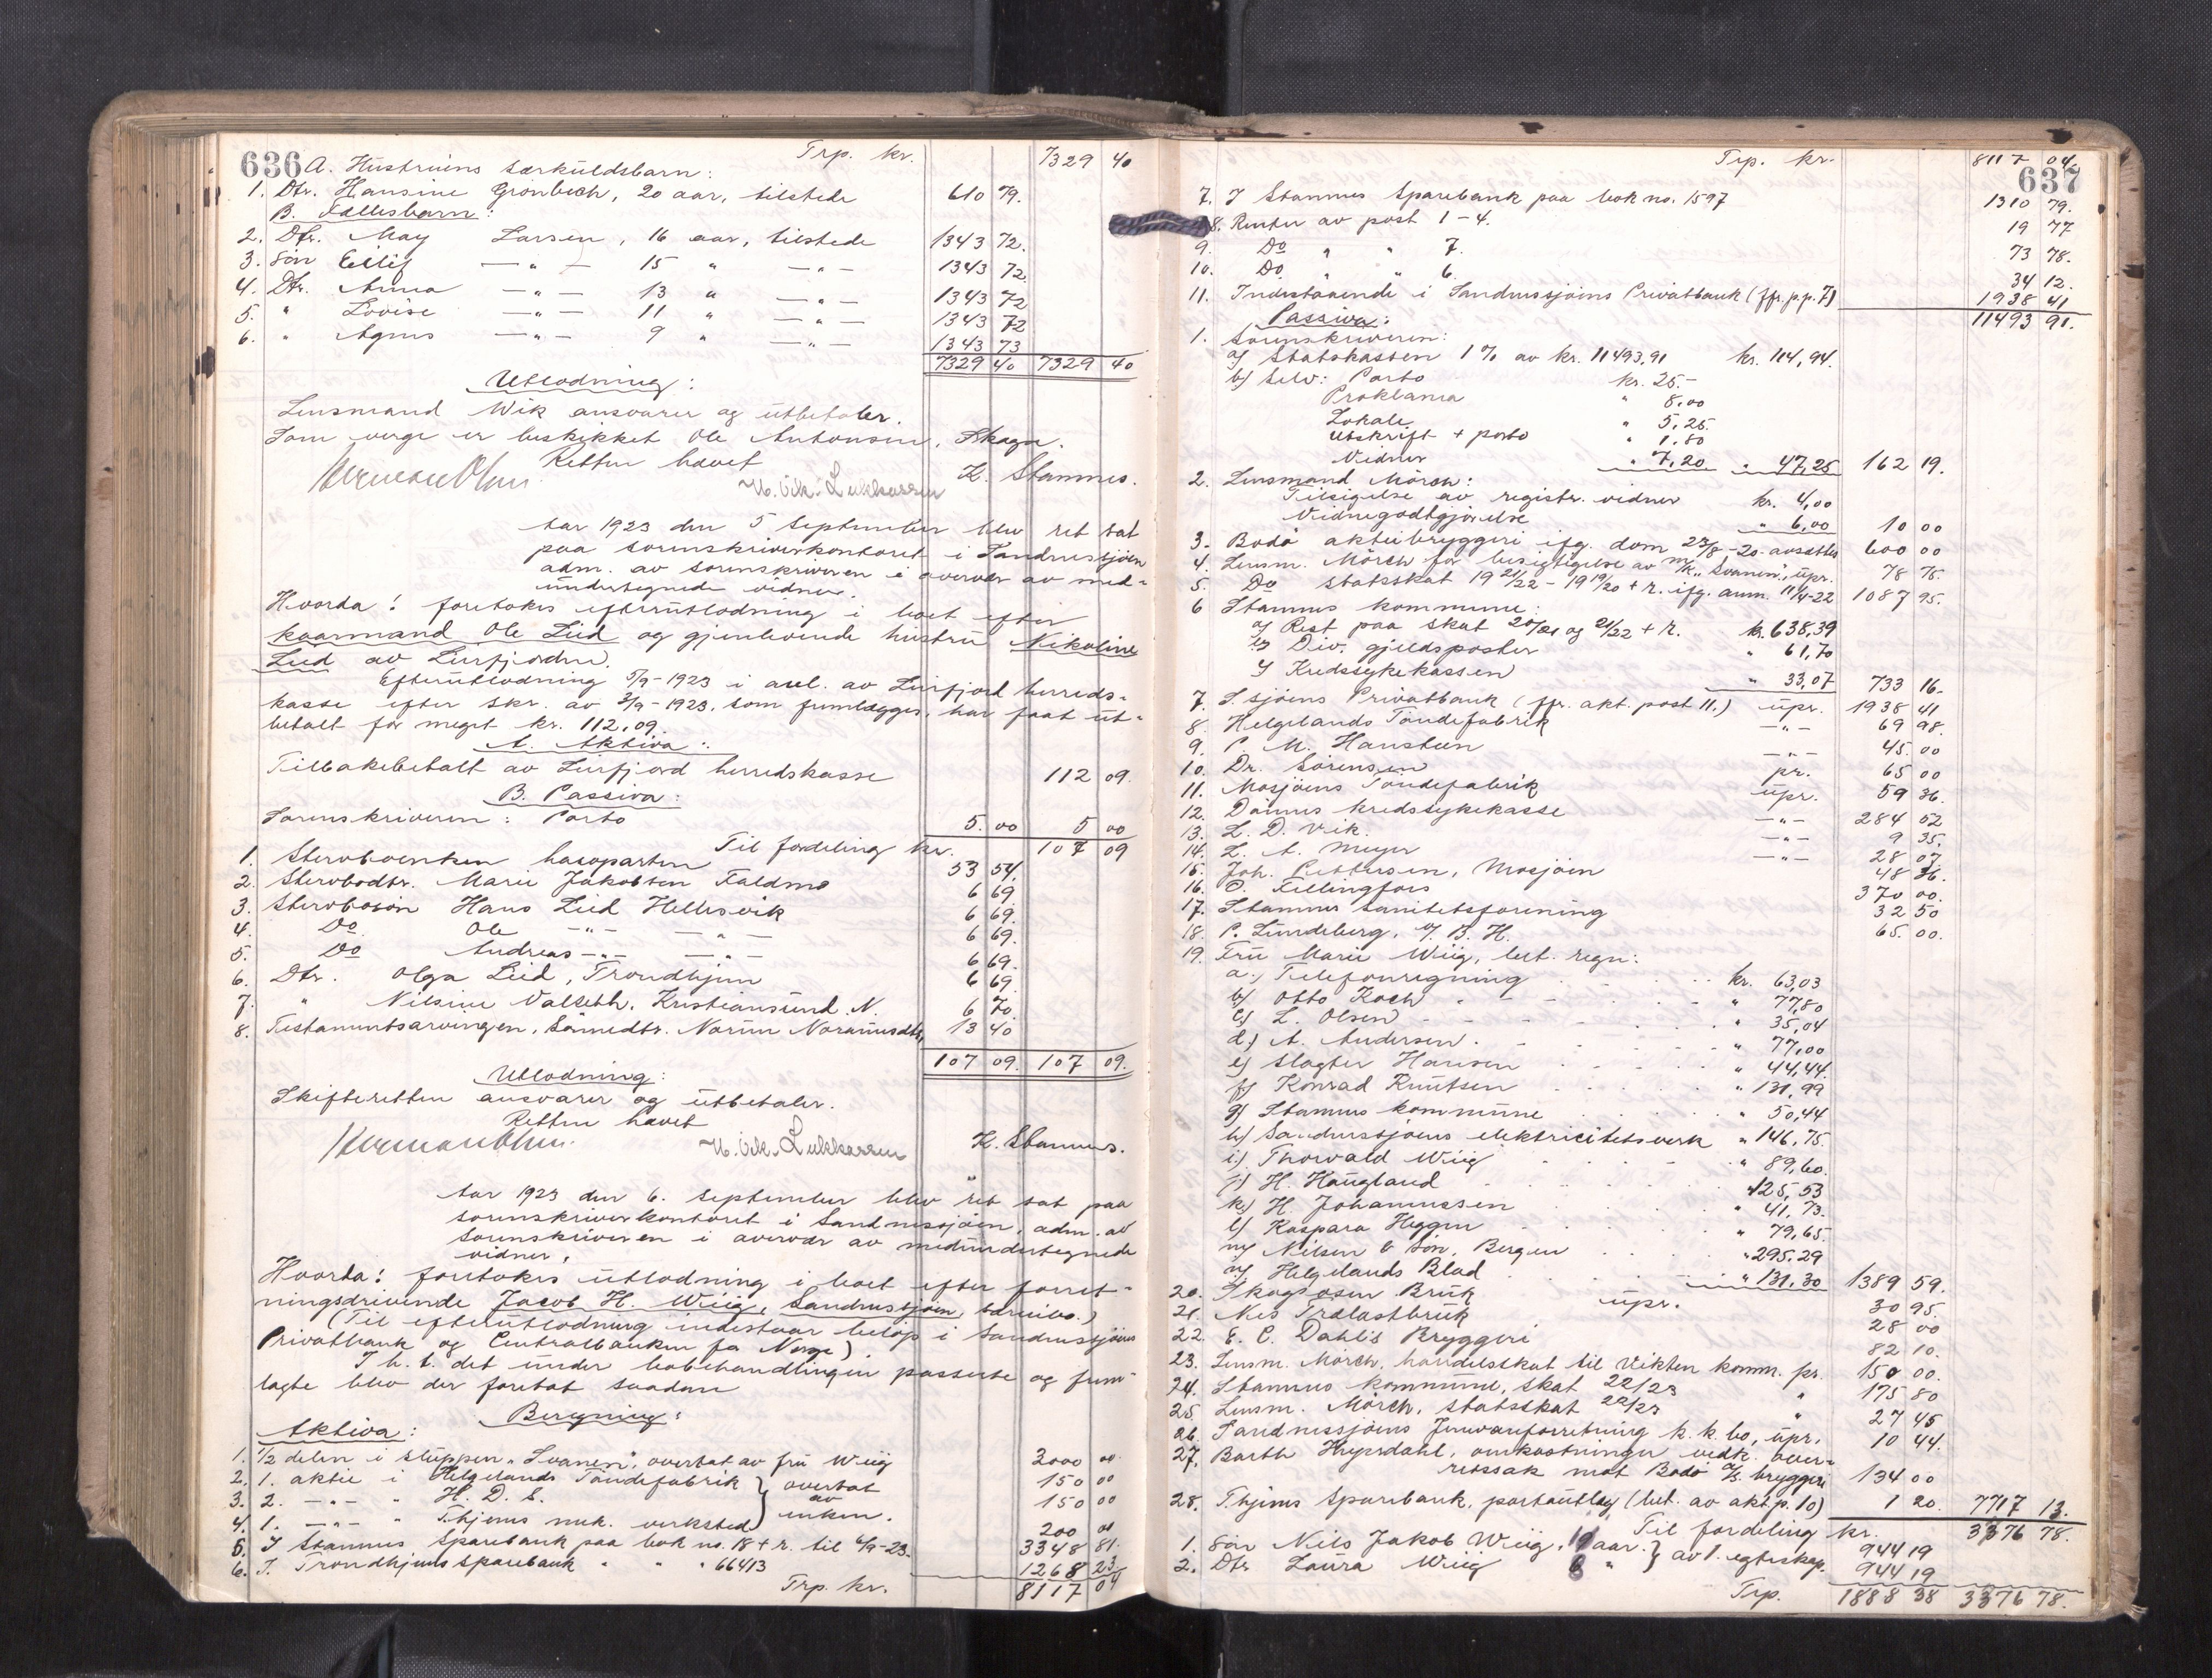 636 Trp. kr. 7329 40
A. Hustruens særkuldsbarn:
1. Dtr. Hansine Grønbech, 20 aar, tilstede 610 79.
B. Fællesbarn:
2. Dtr. May Larsen, 16 aar, tilstede 1343 72.
3. Søn Eilif —"— 15 " —"— 1343 72
4. Dtr. Anna —"— 13 " —"— 1343 72
5. " Lovise —"— 11 " —"— 1343 72
6. " Agnes —"— 9 " —"— 1343 73
7329 40 7329 40
Utlodning:
Lensmand Wik ansvarer og utbetaler.
Som verge er beskikket Ole Antonsen, Skaga.
Retten hævet
L. Stamnes.
Aar 1923 den 5 September blev ret sat
paa sorenskriverkontoret i Sandnessjøen
adm. av sorenskriveren i overvær av med-
undertegnede vidner.
Hvorda! foretokes efterutlodning i boet efter
kaarmand Ole Lied og gjenlevende hustru Nikoline
Lied av Leirfjorden.
Efterutlodning 5/9-1923 i anl. av Leirfjord herreds-
kasse efter skr. av 3/9-1923, som fremlægges, har faat ut-
betalt for meget kr. 112,09.
A. Aktiva:
Tilbakebetalt av Leirfjord herredskasse 112 09.
B. Passiva:
Sorenskriveren: Porto 5.00 5 00
Til fordeling kr. 107 09
1. Sterboenken hovedparten 53 54.
2. Sterbodtr. Marie Jakobsen Faldmo 6 69
3. Sterbosøn Hans Lied Hellesvik 6 69.
4. Do Ole —"— —"— 6 69.
5. Do Andreas —"— —"— 6 69.
6. Dtr. Olga Lied, Trondhjem 6 69.
7. " Nilsine Valseth, Kristiansund N. 6 70.
8. Testamentsarvingen, Sønnedtr. Norunn 13 40
107 09. 107 09.
Utlodning:
Skifteretten ansvarer og utbetaler.
Retten hævet
L. Stamnes.
Aar 1923 den 6. September blev ret sat paa
sorenskriverkontoret i Sandnessjøen, adm. av
sorenskriveren i overvær av medundertegnede
vidner.
Hvorda! foretokes utlodning i boet efter forret-
ningsdrivende Jacob H. Wiig, Sandnessjøen, særeibo.
(Til efterutlodning indestaar beløp i Sandnessjøens
Privatbank og Centralbanken for Norge).
I h. t. det under bobehandlingen passerte og frem-
lagte blev der foretat saadan
Beregning:
Aktiva:
1. 1/2 delen i sluppen "Svanen", overtat av fru Wiig 2000 00.
2. 1. aktie i Helgelands Tøndefabrik } overtat 150 00
3. 2. —"— " H. D. S. av 150 00
4. 1. —"— " Thjems mek. verksted enken. 200 00
5. I Stamnes Sparebank paa bok no. 18 + r. til 6/9-23. 3348 81.
6. I. Trondhjems Sparebank " " " 66413 1268 23
Trp. kr. 8117 04
637 Trp. kr. 8117 04.
7. I Stamnes Sparebank paa bok no. 1597 1310 79.
8. Renter av post 1-4. 19 77
9. Do " " 7. 73 78.
10. Do " " 6 34 12.
11. Indestaaende i Sandnessjøens Privatbank (jfr. p.p. 7) 1938 41
11493 91.
Passiva:
1. Sorenskriveren:
a) Statskassen 1% av kr. 11493,91 kr. 114,94.
b) Selv: Porto kr. 25.-
Proklama " 8.00
Lokale " 5,25
Utskrift + porto " 1.80
Vidner " 7,20 " 47,25 162 19.
2. Lensmand Mörch:
Tilsigelse av registr. vidner kr. 4,00
Vidnegodtgjørelse " 6,00 10 00
3. Bodø aktiebryggeri ifg. dom 23/8-20 avsattes 600 00
4. Lensm. Mörch for besigtigelse av m/k. "Svanen", upr. 78 75.
5. Do statsskat 19 21/22 - 19 19/20 + r. ifg. anm. 11/4-22 1087 95.
6 Stamnes kommune:
a) Rest paa skat 20/21 og 21/22 + r. kr. 638,39
b) Div. gjeldsposter " 61,70
c) Kredssykekassen " 33,07 733 16-
7. S.sjøens Privatbank (jfr. akt. post 11.) upr. 1938 41
8. Helgelands Tøndefabrik —"— 69 98.
9. P. M. Hansteen —"— 45 00
10. Dr. Sørensen pr. 65 00
11. Mosjøens Tøndefabrik upr. 59 36.
12. Dønnes kredssykekasse —"— 284 52
13. L. D. Vik. —"— 9 35.
14. L. A. Meyer —"— 28 07
15. Joh. Pettersen, Mosjøen 48 36.
16. O. Fellingfors 370 00.
17. Stamnes sanitetsforening 32 50
18. P. Lundeberg, v/ B. H. 65 00.
19. Fru Marie Wiig, bet. regn:
a.) Telefonregning kr. 63,03
b) Otto Koch " 77,80
c) L. Olsen " 35,04
d) A. Andersen " 77,00
e) Slagter Hansen " 44,44
f) Konrad Knutsen " 131,99
g) Stamnes kommune " 50,44
h) Sandnessjøens elektricitetsverk " 146,75
i) Thorvald Wiig " 89,60.
j) H. Haugland " 125,53
k) H. Johannessen " 41,73.
l) Kaspara Heggen " 79,65.
m) Nilsen & Søn, Bergen " 295,29
n) Helgelands Blad " 131,30 1389 59.
20. Skogsosen Bruk upr. 30 95
21. Nes Trælastbruk 28 00
22. E. C. Dahls Bryggeri 82 10.
23. Lensm. Mörch, handelsskat til Vikten komm. pr. 150 00.
24. Stamnes kommune, skat 22/23 " 175 80
25. Lensm. Mörch, statsskat 22/23 " 27 45
26. Sandnessjøens Jernvareforretning k.k. bo, upr. 10 44.
27. Barth Heyerdahl, omkostninger vedk. over-
retssak mot Bodø a/s. bryggeri 134 00
28. Thjems Sparebank, portoutlæg (bet. av akt. p. 10) 1 20. 7717 13.
Til fordeling kr. 3376 78.
1. Søn Nils Jakob Wiig, aar. } av 1. egteskap. 944 19
2. Dtr. Laura Wiig " 944 19
Trp. 1888 38 3376 78.